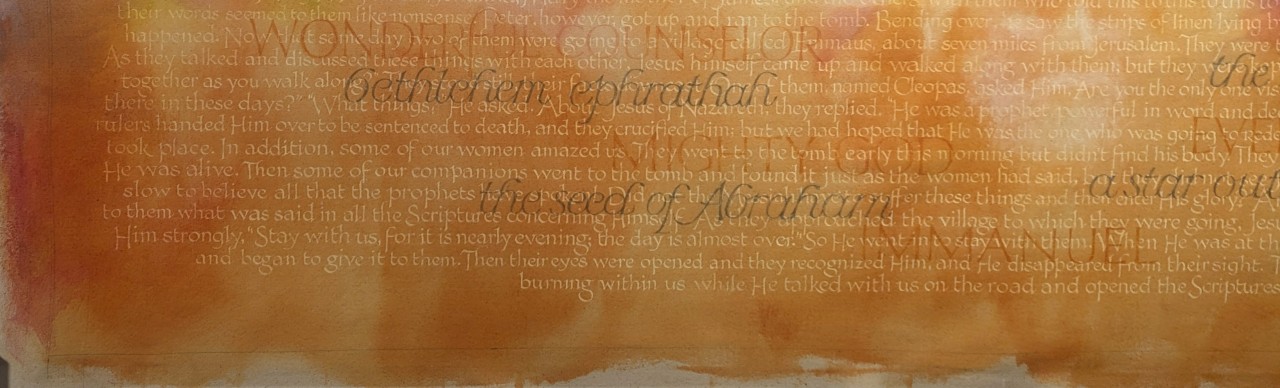 their words seemed to them like nonsense. Peter, however, got up and ran to the tomb. Bending over, he saw the strips of linen lying by
WONDERFUL COUNSELOR
happened. Now that same day two of them were going to a village called Emmaus, about seven miles from Jerusalem. They were
As they talked and discussed these things with each other, Jesus himself came up and walked along with them; but they
Bethlehem ephrathah
the
together as you walk them, named Cleopas, asked Him, Are you the only one
there in these days?" "What things?" He asked. "About Jesus of Nazareth," they replied. "He was a prophet, powerful in word and
rulers handed Him over to be sentenced to death, and they crucified Him; but we had hoped that He was the one who was going to
EVE
took place. In addition, some of our women amazed us. They went to the tomb early this morning but didn't find his body. They
MIGHTY GOD
He was alive. Then some of our companions went to the tomb and found it just as the women had said,
a star out
slow to believe all that the prophets these things and then enter his glory?"
the seed of Abraham
to them what was said in all the Scriptures concerning himself. the village to which they were going,
Him strongly, "Stay with us, for it is nearly evening; the day is almost over." So He went in to stay with them. When He was at
IMMANUEL
and began to give it to them. Then their eyes were opened and they recognized Him, and He disappeared from their sight.
burning within us while He talked with us on the road and opened the Scriptures